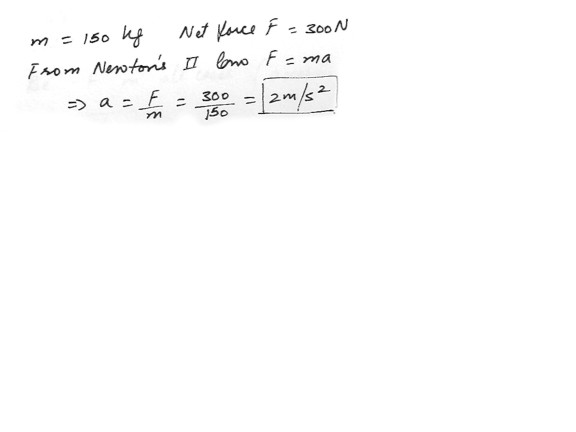 m = 150 kg Net force F = 300N
From Newton's II law F = ma
⇒ a = F/m = 300/150 = 2m/s²